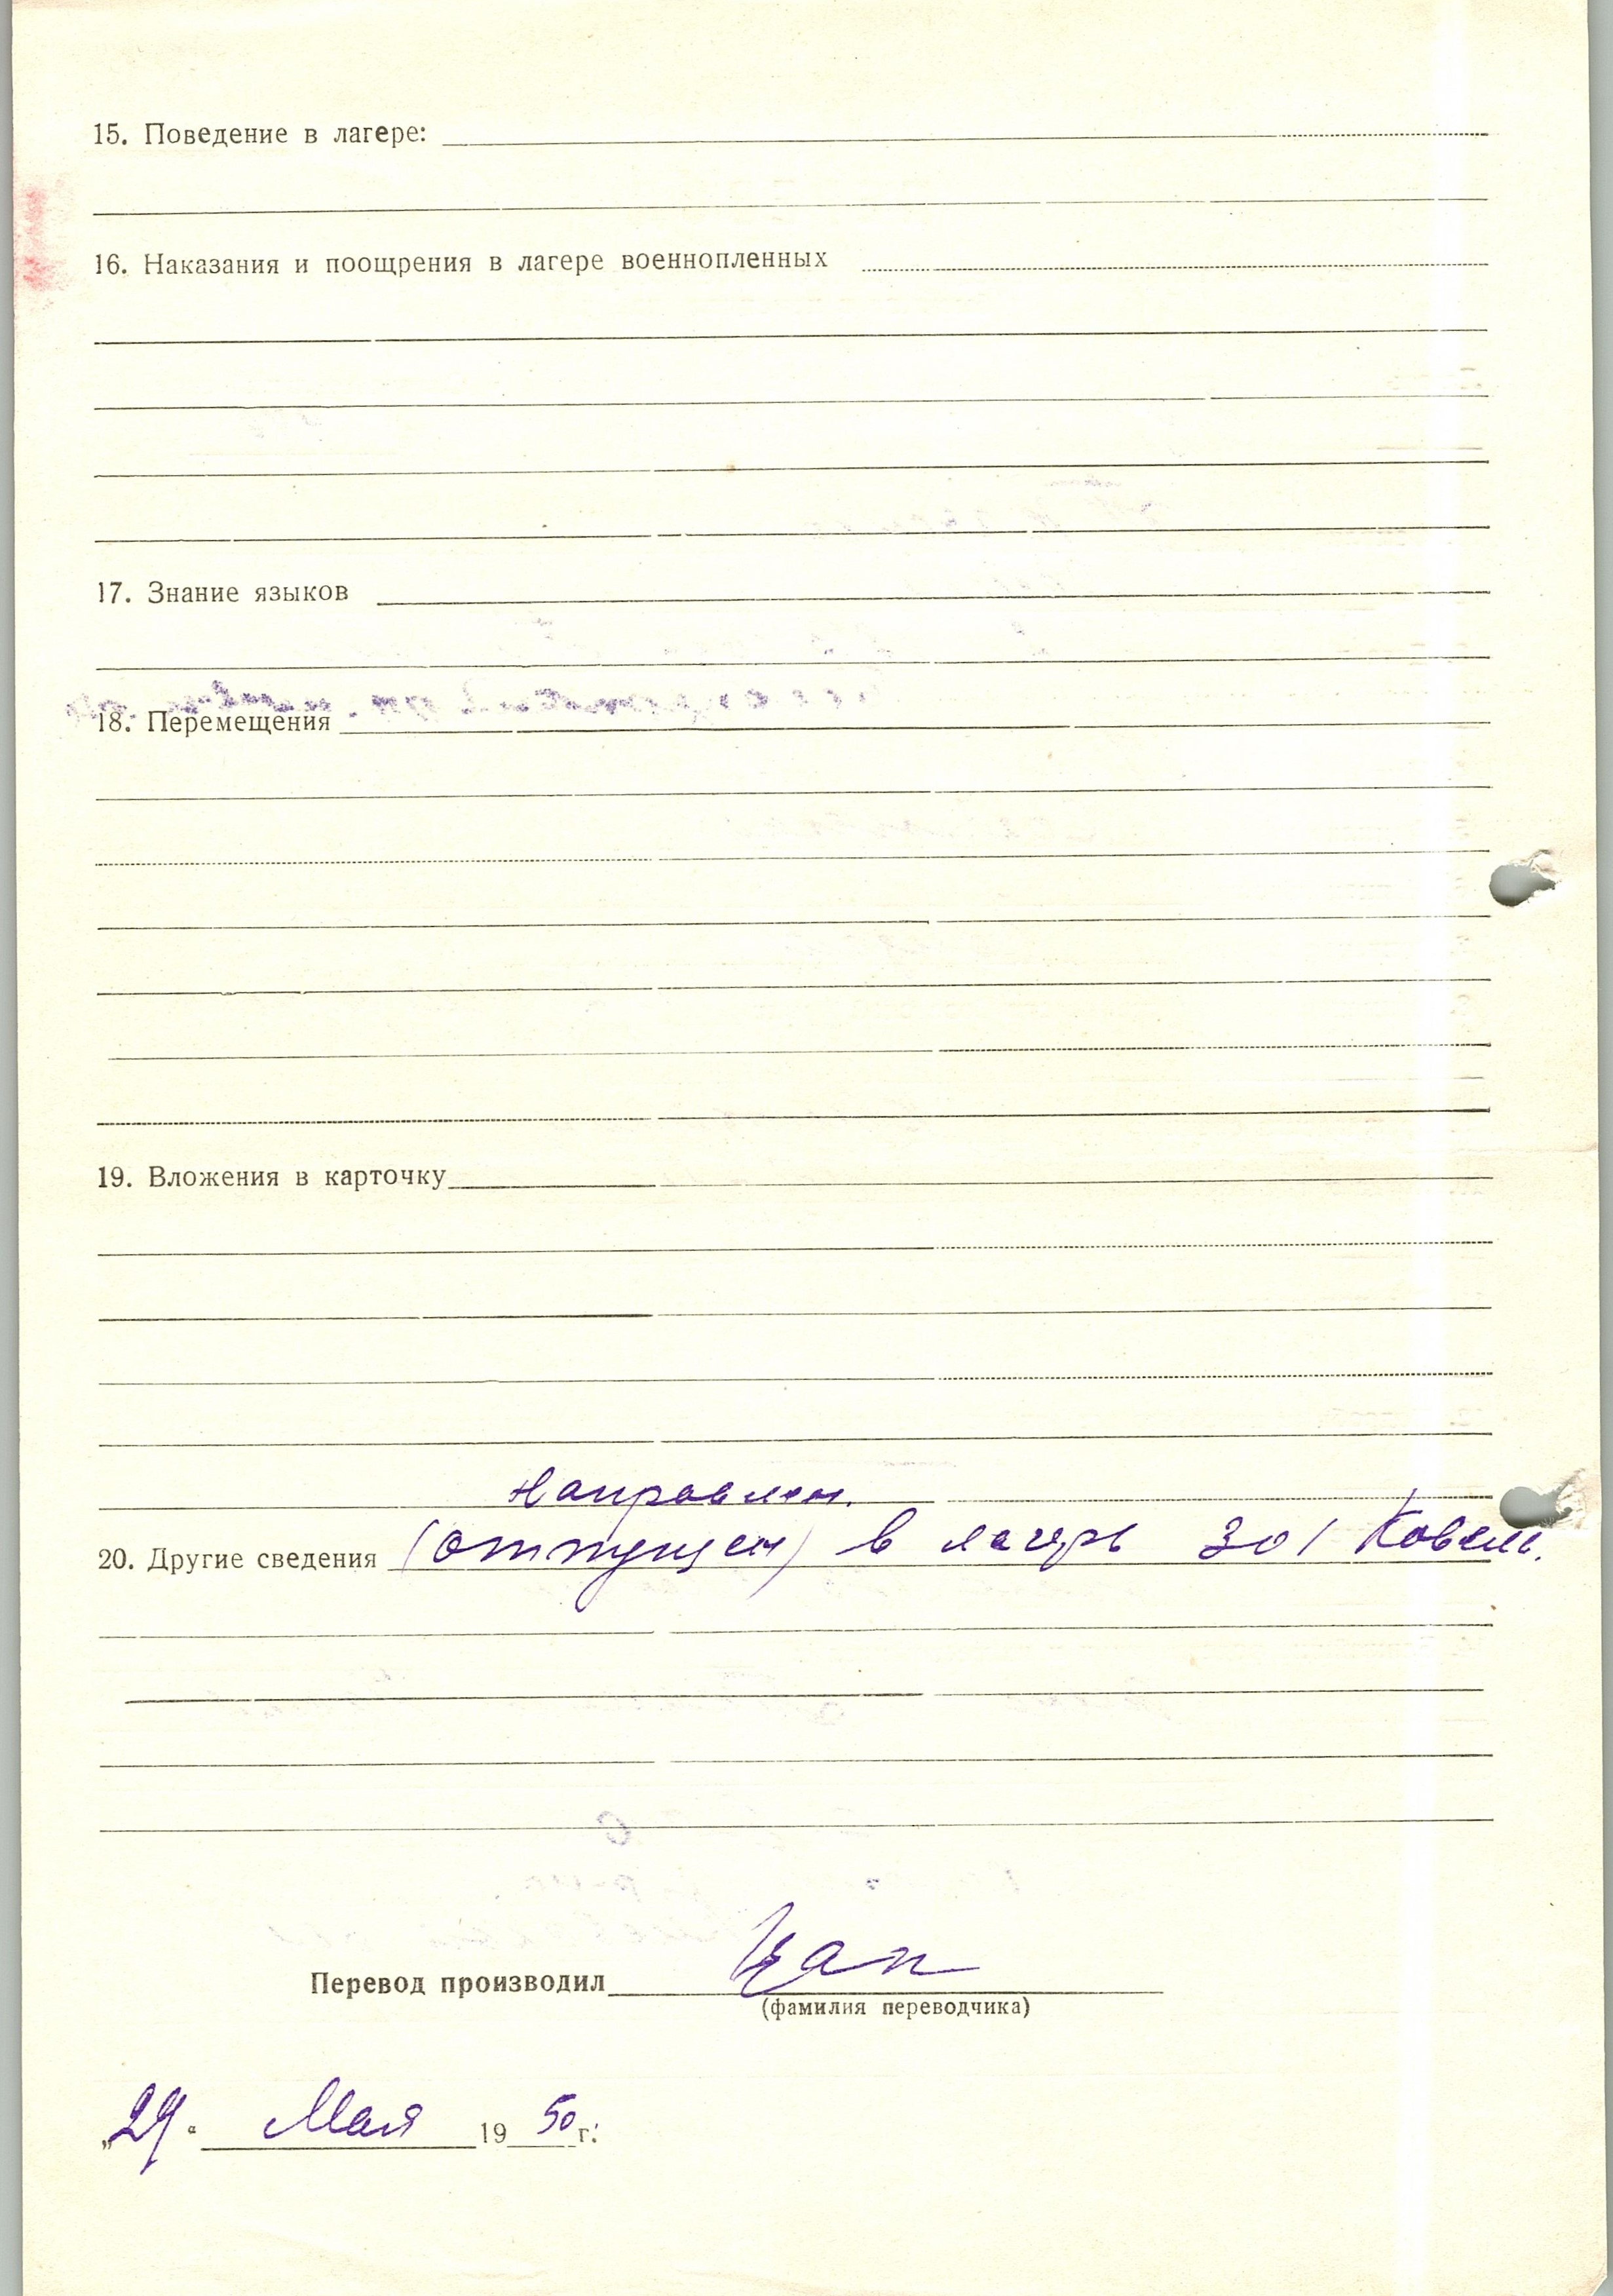 15. Поведение в лагере:
16. Наказания и поощрения в лагере военнопленных
17. Знание языков
18. Перемещения
19. Вложения в карточку
Направлен.
20. Другие сведения (отпущен) в лагерь 301 Ковель.
Перевод производил
(фамилия переводчика)
„29“ Мая 1950 г.